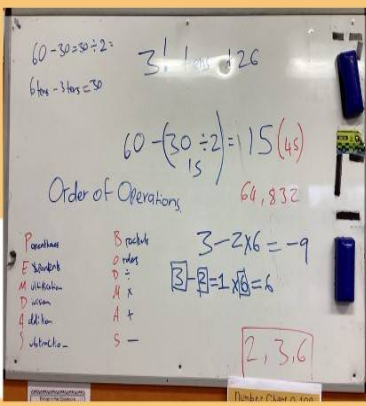 60-30=30÷2=
6 tens - 3 tens = 30
126
60-(30÷2)=115(45)
15
Order of Operations
64,832
Parentheses
Exponents
Multiplication
Division
Addition
Subtraction
Brackets
Orders
D ÷
M ×
A +
S −
3-2×6=-9
3-2=1×6=6
2,3,6
Number Chart 0-100